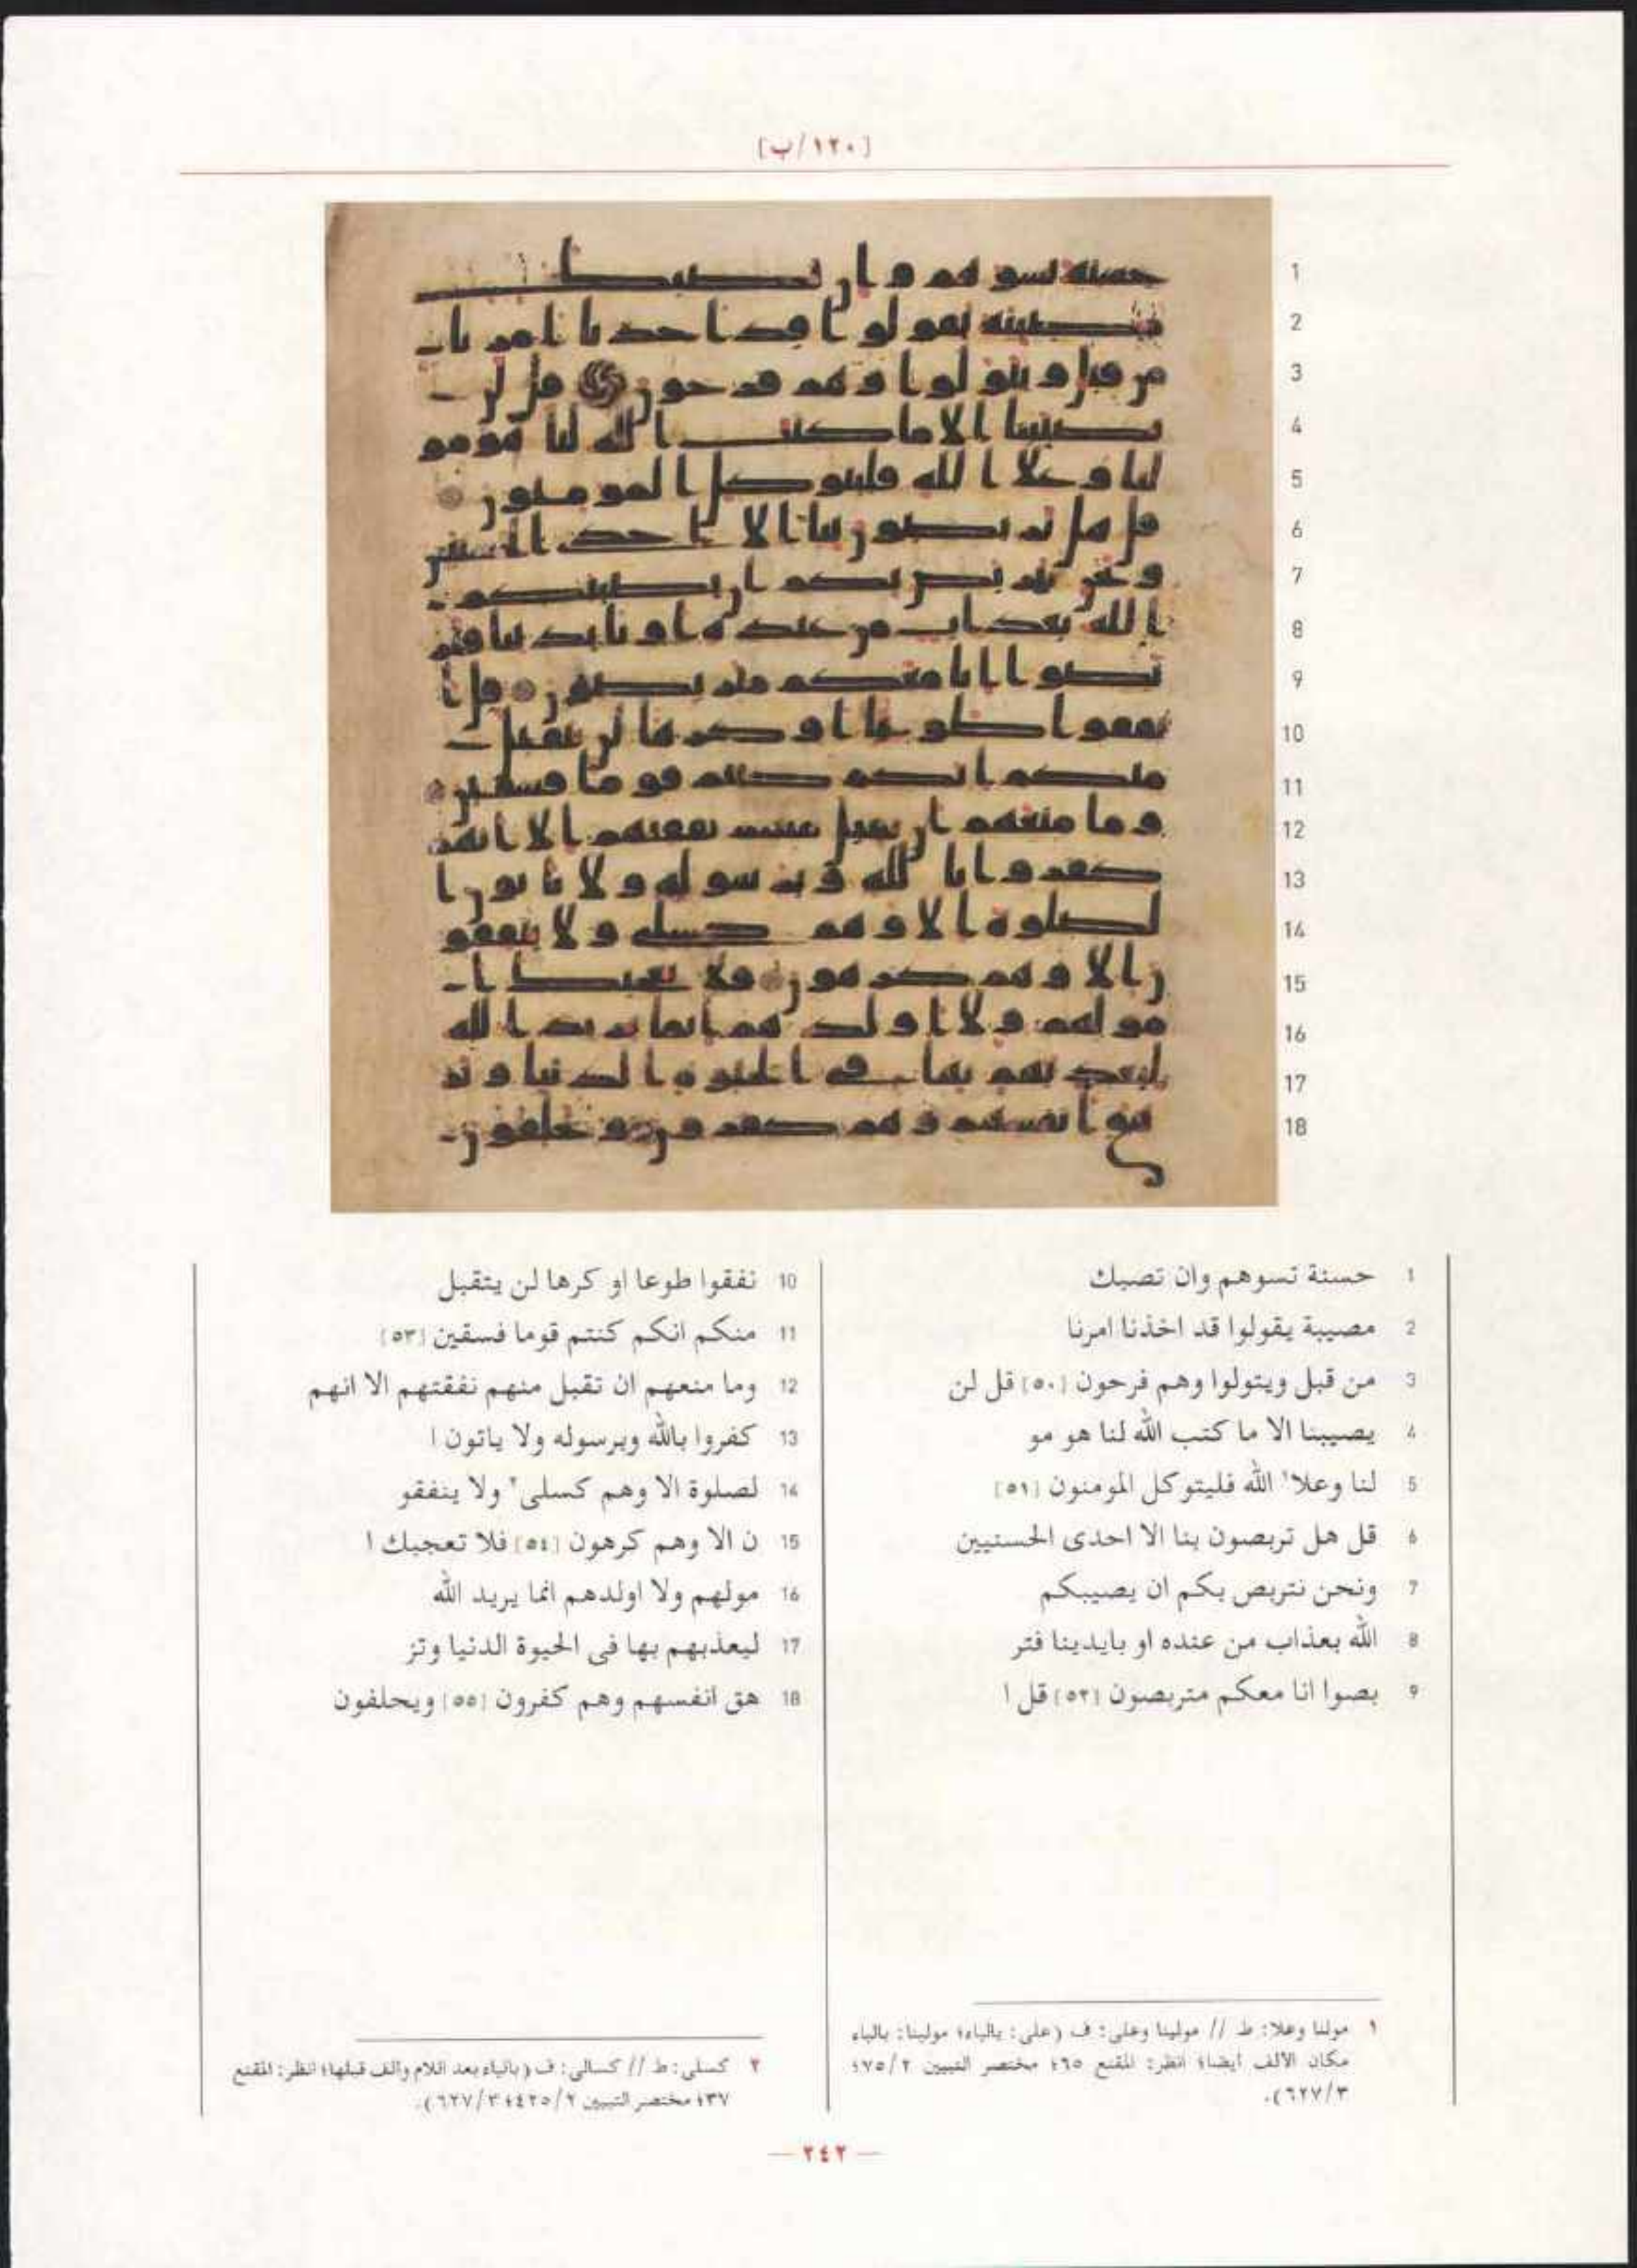 [١٢٠/ب]
1 حسنة تسوهم وان تصبك
2 مصيبة يقولوا قد اخذنا امرنا
3 من قبل ويتولوا وهم فرحون [٥٠] قل لن
4 يصيبنا الا ما كتب الله لنا هو مو
5 لنا وعلا١ الله فليتوكل المومنون [٥١]
6 قل هل تربصون بنا الا احدى الحسنيين
7 ونحن نتربص بكم ان يصيبكم
8 الله بعذاب من عنده او بايدينا فتر
9 بصوا انا معكم متربصون [٥٢] قل ا
10 نفقوا طوعا او كرها لن يتقبل
11 منكم انكم كنتم قوما فسقين [٥٣]
12 وما منعهم ان تقبل منهم نفقتهم الا انهم
13 كفروا بالله وبرسوله ولا ياتون ا
14 لصلوة الا وهم كسلى٢ ولا ينفقو
15 ن الا وهم كرهون [٥٤] فلا تعجبك ا
16 مولهم ولا اولدهم انما يريد الله
17 ليعذبهم بها فى الحيوة الدنيا وتز
18 هق انفسهم وهم كفرون [٥٥] ويحلفون
١ مولنا وعلا: ط // مولينا وعلى: ف (على: بالياء؛ مولينا: بالياء
مكان الالف ايضا؛ انظر: المقنع ٦٥؛ مختصر التبيين ٧٥/٢؛
٦٢٧/٣).
٢ كسلى: ط // كسالى: ف (بالياء بعد اللام والف قبلها؛ انظر: المقنع
٣٧؛ مختصر التبيين ٤٢٥/٢؛ ٦٢٧/٣).
— ٢٤٢ —